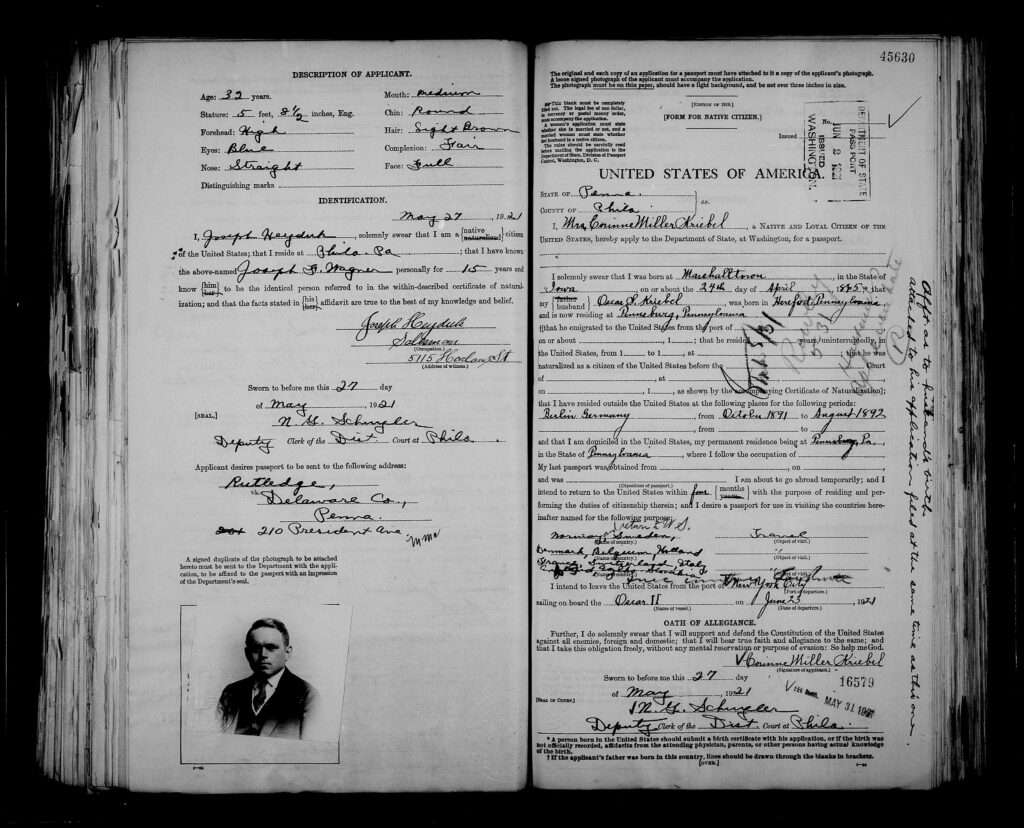 DESCRIPTION OF APPLICANT.
Age: 32 years.
Stature: 5 feet, 8 1/2 inches, Eng.
Forehead: High
Eyes: Blue
Nose: Straight
Distinguishing marks
Mouth: medium
Chin: Round
Hair: Light Brown
Complexion: Fair
Face: Full
IDENTIFICATION.
May 27, 1921
I, Joseph Heyduk, solemnly swear that I am a {native naturalized} citizen
of the United States; that I reside at Phila. Pa; that I have known
the above-named Joseph F. Wagner personally for 15 years and
know {him her} to be the identical person referred to in the within-described certificate of natural-
ization; and that the facts stated in {his her} affidavit are true to the best of my knowledge and belief.
Joseph Heyduk
Salesman
(Occupation.)
5115 St
(Address of witness.)
Sworn to before me this 27 day
of May, 1921
[SEAL.]
Deputy Clerk of the Dist Court at Phila.
Applicant desires passport to be sent to the following address:
Rutledge,
Delaware Co.,
Penna.
210 President Ave
A signed duplicate of the photograph to be attached
hereto must be sent to the Department with the appli-
cation, to be affixed to the passport with an impression
of the Department's seal.
45630
The original and each copy of an application for a passport must have attached to it a copy of the applicant's photograph.
A loose signed photograph of the applicant must accompany the application.
The photograph must be on thin paper, should have a light background, and be not over three inches in size.
This blank must be completely
filled out. The legal fee of one dollar,
in currency or postal money order,
must accompany the application.
A woman's application must state
whether she is married or not, and a
married woman must state whether
her husband is a native citizen.
The rules should be carefully read
before mailing the application to the
Department of State, Division of Passport
Control, Washington, D. C.
[EDITION OF 1919.]
[FORM FOR NATIVE CITIZEN.]
Issued
DEPARTMENT OF STATE
PASSPORT
JUN 2 1921
ISSUED
WASHINGTON
UNITED STATES OF AMERICA.
STATE OF Penna.
COUNTY OF Phila
ss:
I, Mrs Corinne Miller Kriebel, a NATIVE AND LOYAL CITIZEN OF THE
UNITED STATES, hereby apply to the Department of State, at Washington, for a passport.
I solemnly swear that I was born at Marshalltown, in the State of
Iowa, on or about the 24th day of April, 1885; that
my {father husband} Oscar S. Kriebel, was born in Hereford, Pennsylvania
and is now residing at Pennsburg, Pennsylvania
[that he emigrated to the United States from the port of
on or about, 1; that he resided years, uninterruptedly, in
the United States, from 1 to 1, at; that he was
naturalized as a citizen of the United States before the Court
of, at
on, 1, as shown by the accompanying Certificate of Naturalization];
that I have resided outside the United States at the following places for the following periods:
Berlin Germany, from October 1891 to August 1892
, from to
and that I am domiciled in the United States, my permanent residence being at Pennsburg, Pa.
in the State of Pennsylvania, where I follow the occupation of
My last passport was obtained from, on
and was (Disposition of passport.) I am about to go abroad temporarily; and I
intend to return to the United States within four {months years} with the purpose of residing and per-
forming the duties of citizenship therein; and I desire a passport for use in visiting the countries herein-
after named for the following purpose:
return to U.S.
Norway Sweden, Travel
(Name of country.) (Object of visit.)
Denmark, Belgium, Holland "
(Name of country.) (Object of visit.)
France, Switzerland, Italy
(Name of country.) (Object of visit.)
I intend to leave the United States from the port of New York City
(Port of departure.)
sailing on board the Oscar II on June 23, 1921
(Name of vessel.) (Date of departure.)
OATH OF ALLEGIANCE.
Further, I do solemnly swear that I will support and defend the Constitution of the United States
against all enemies, foreign and domestic; that I will bear true faith and allegiance to the same; and
that I take this obligation freely, without any mental reservation or purpose of evasion: So help me God.
Corinne Miller Kriebel
(Signature of applicant.)
Sworn to before me this 27 day
16579
of May, 1921
MAY 31 1921
[SEAL OF COURT.]
Deputy Clerk of the Dist Court at Phila.
* A person born in the United States should submit a birth certificate with his application, or if the birth was
not officially recorded, affidavits from the attending physician, parents, or other persons having actual knowledge
of the birth.
† If the applicant's father was born in this country, lines should be drawn through the blanks in brackets.
[OVER.]
Affr. as to husband's birth
attached to his application filed at the same time as this one.